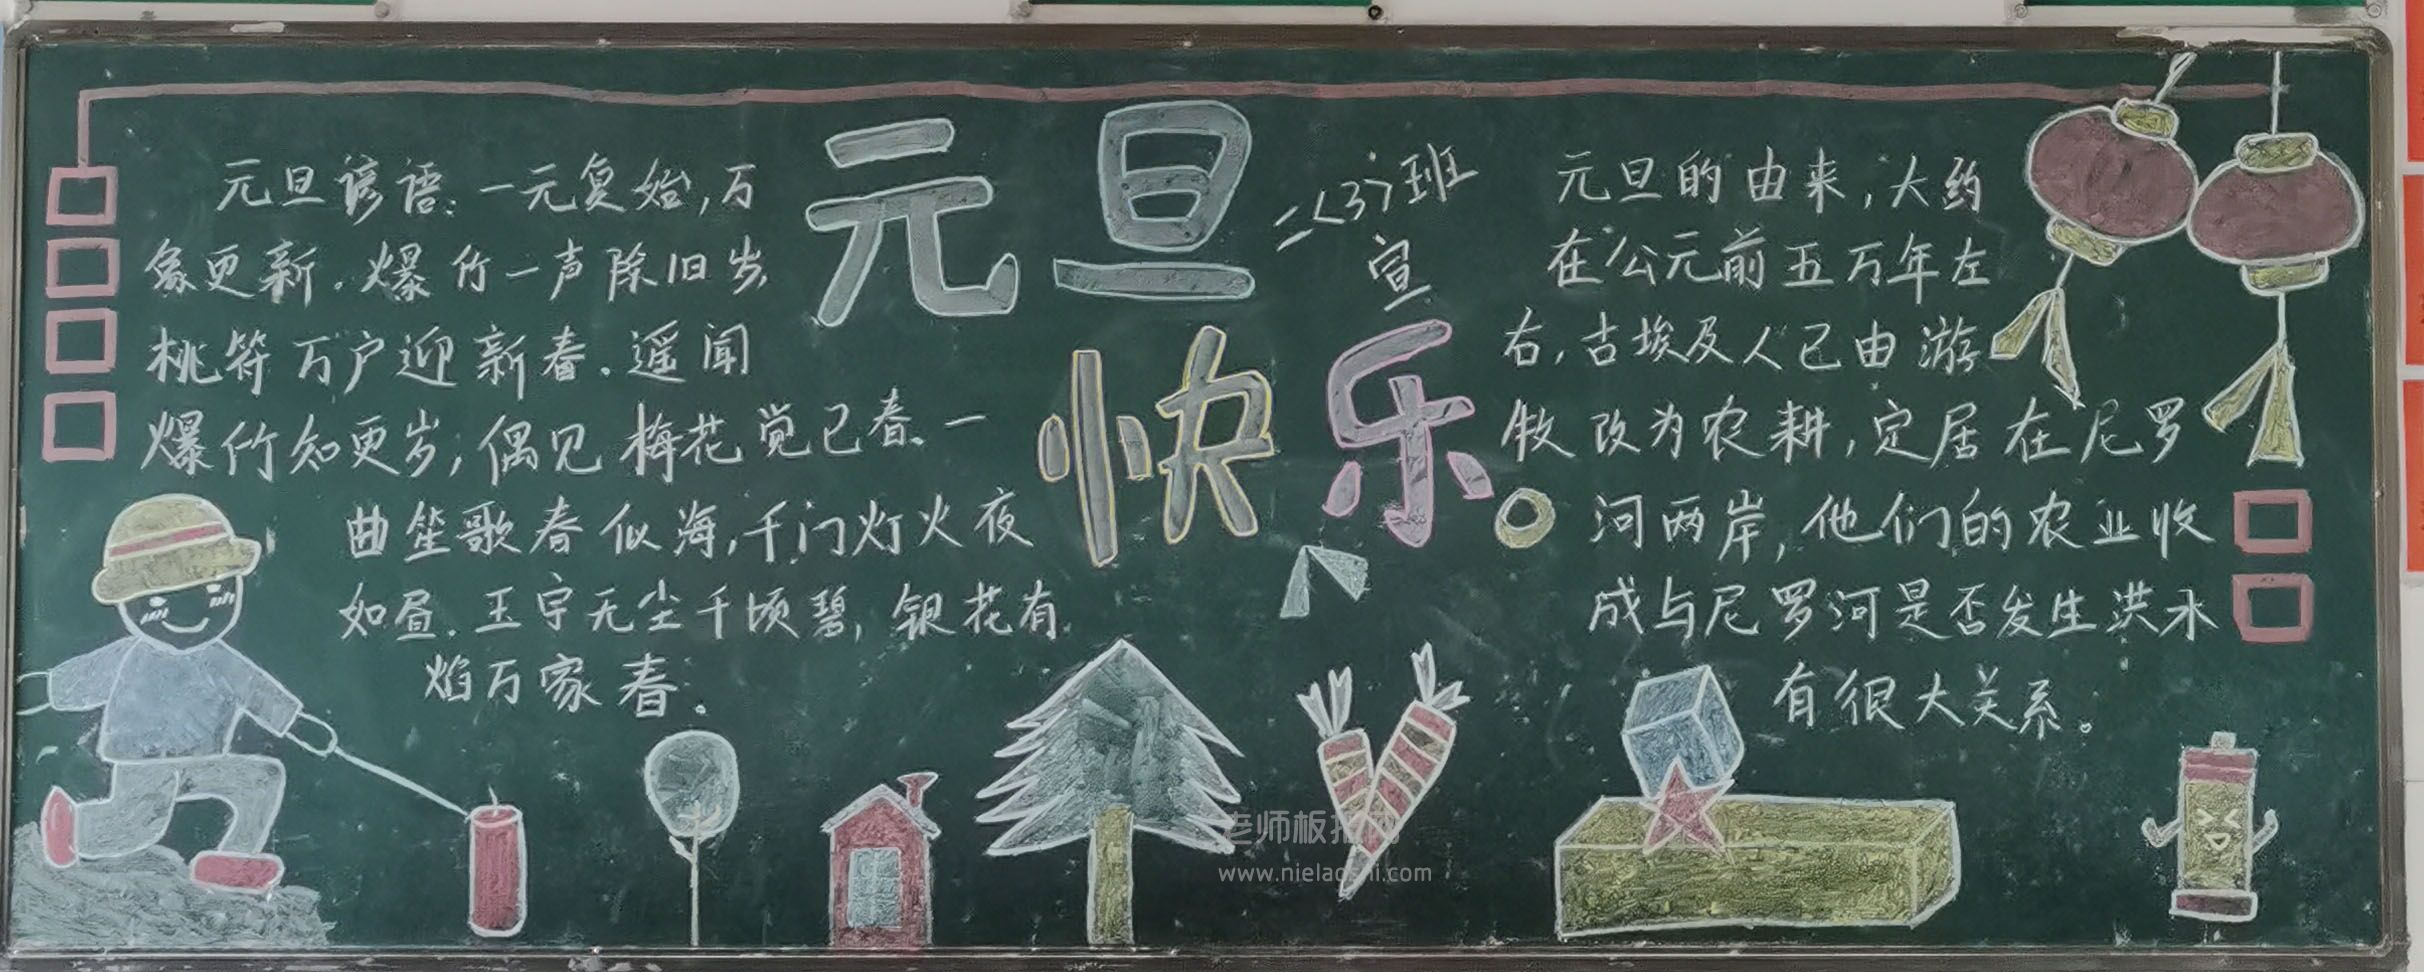 元旦谚语：一元复始，万
象更新。爆竹一声除旧岁，
桃符万户迎新春。遥闻
爆竹知更岁，偶见梅花觉已春。一
曲笙歌春似海，千门灯火夜
如昼。玉宇无尘千顷碧，银花有
焰万家春。
元旦
快乐
二〈3〉班
宣
元旦的由来，大约
在公元前五万年左
右，古埃及人已由游
牧改为农耕，定居在尼罗
河两岸，他们的农业收
成与尼罗河是否发生洪水
有很大关系。
老师板报网
www.nielaoshi.com